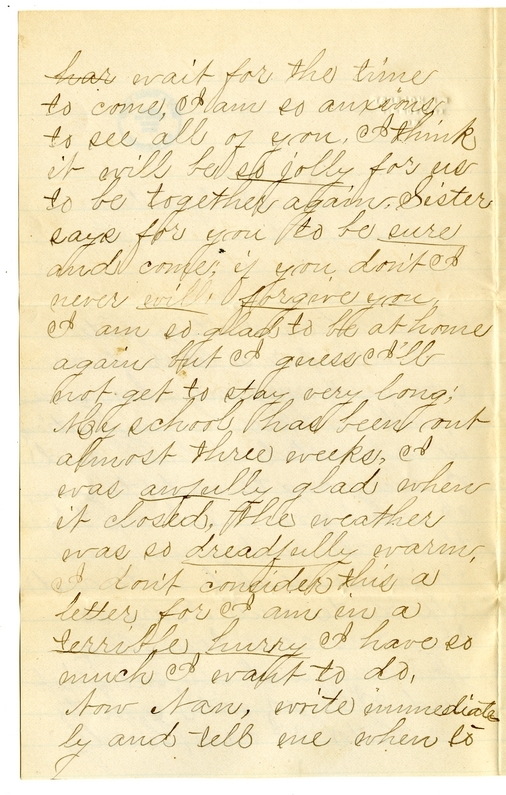 har wait for the time
to come, I am so anxious
to see all of you. I think
it will be so jolly for us
to be together again. Sister
says for you to be sure
and come; if you don't I
never will forgive you.
I am so glad to be at home
again but I guess I'll
not get to stay very long;
My school has been out
almost three weeks, I
was awfully glad when
it closed, the weather
was so dreadfully warm,
I don't consider this a
letter for I am in a
terrible hurry I have so
much I want to do.
Now Nan, write immediate
ly and tell me when to